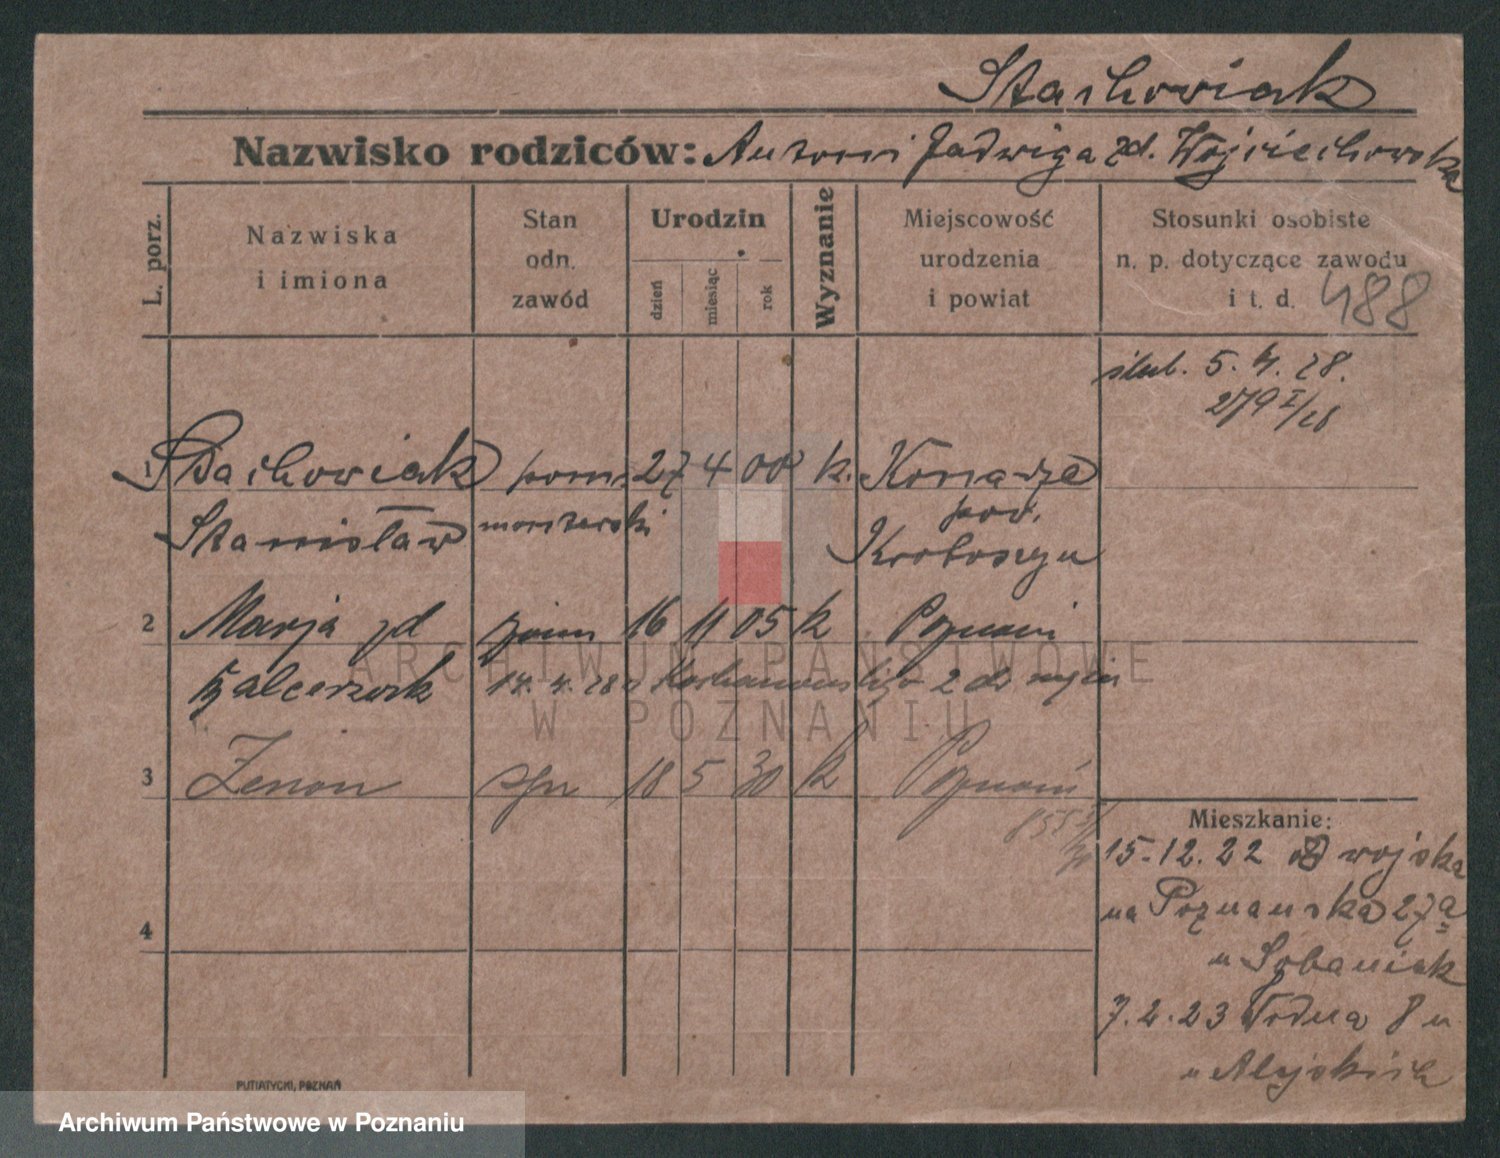 Stachowiak
Nazwisko rodziców: Antoni Jadwiga zd. Wojciechowska
L. porz.
Nazwiska
i imiona
Stan
odn.
zawód
Urodzin
dzień
miesiąc
rok
Wyznanie
Miejscowość
urodzenia
i powiat
Stosunki osobiste
n. p. dotyczące zawodu
i t. d. 488
ślub. 5. 4. 28.
279 I/28
1 Stachowiak pom. 27 4 00 k. Konarzew
Stanisław monterski pow.
Krotoszyn
2 Marja zd 16 11 05 k Poznań
Balcerzak 14. 4. 28 2 do
3 Zenon syn 18 5 30 k Poznań
855
Mieszkanie:
15.12.22 z wojska
na Poznańska 27a
u Sobaniak
4
7.2.23 Wodna 8 u
u
PUTIATYCKI, POZNAŃ
ARCHIWUM PAŃSTWOWE
W POZNANIU
Archiwum Państwowe w Poznaniu